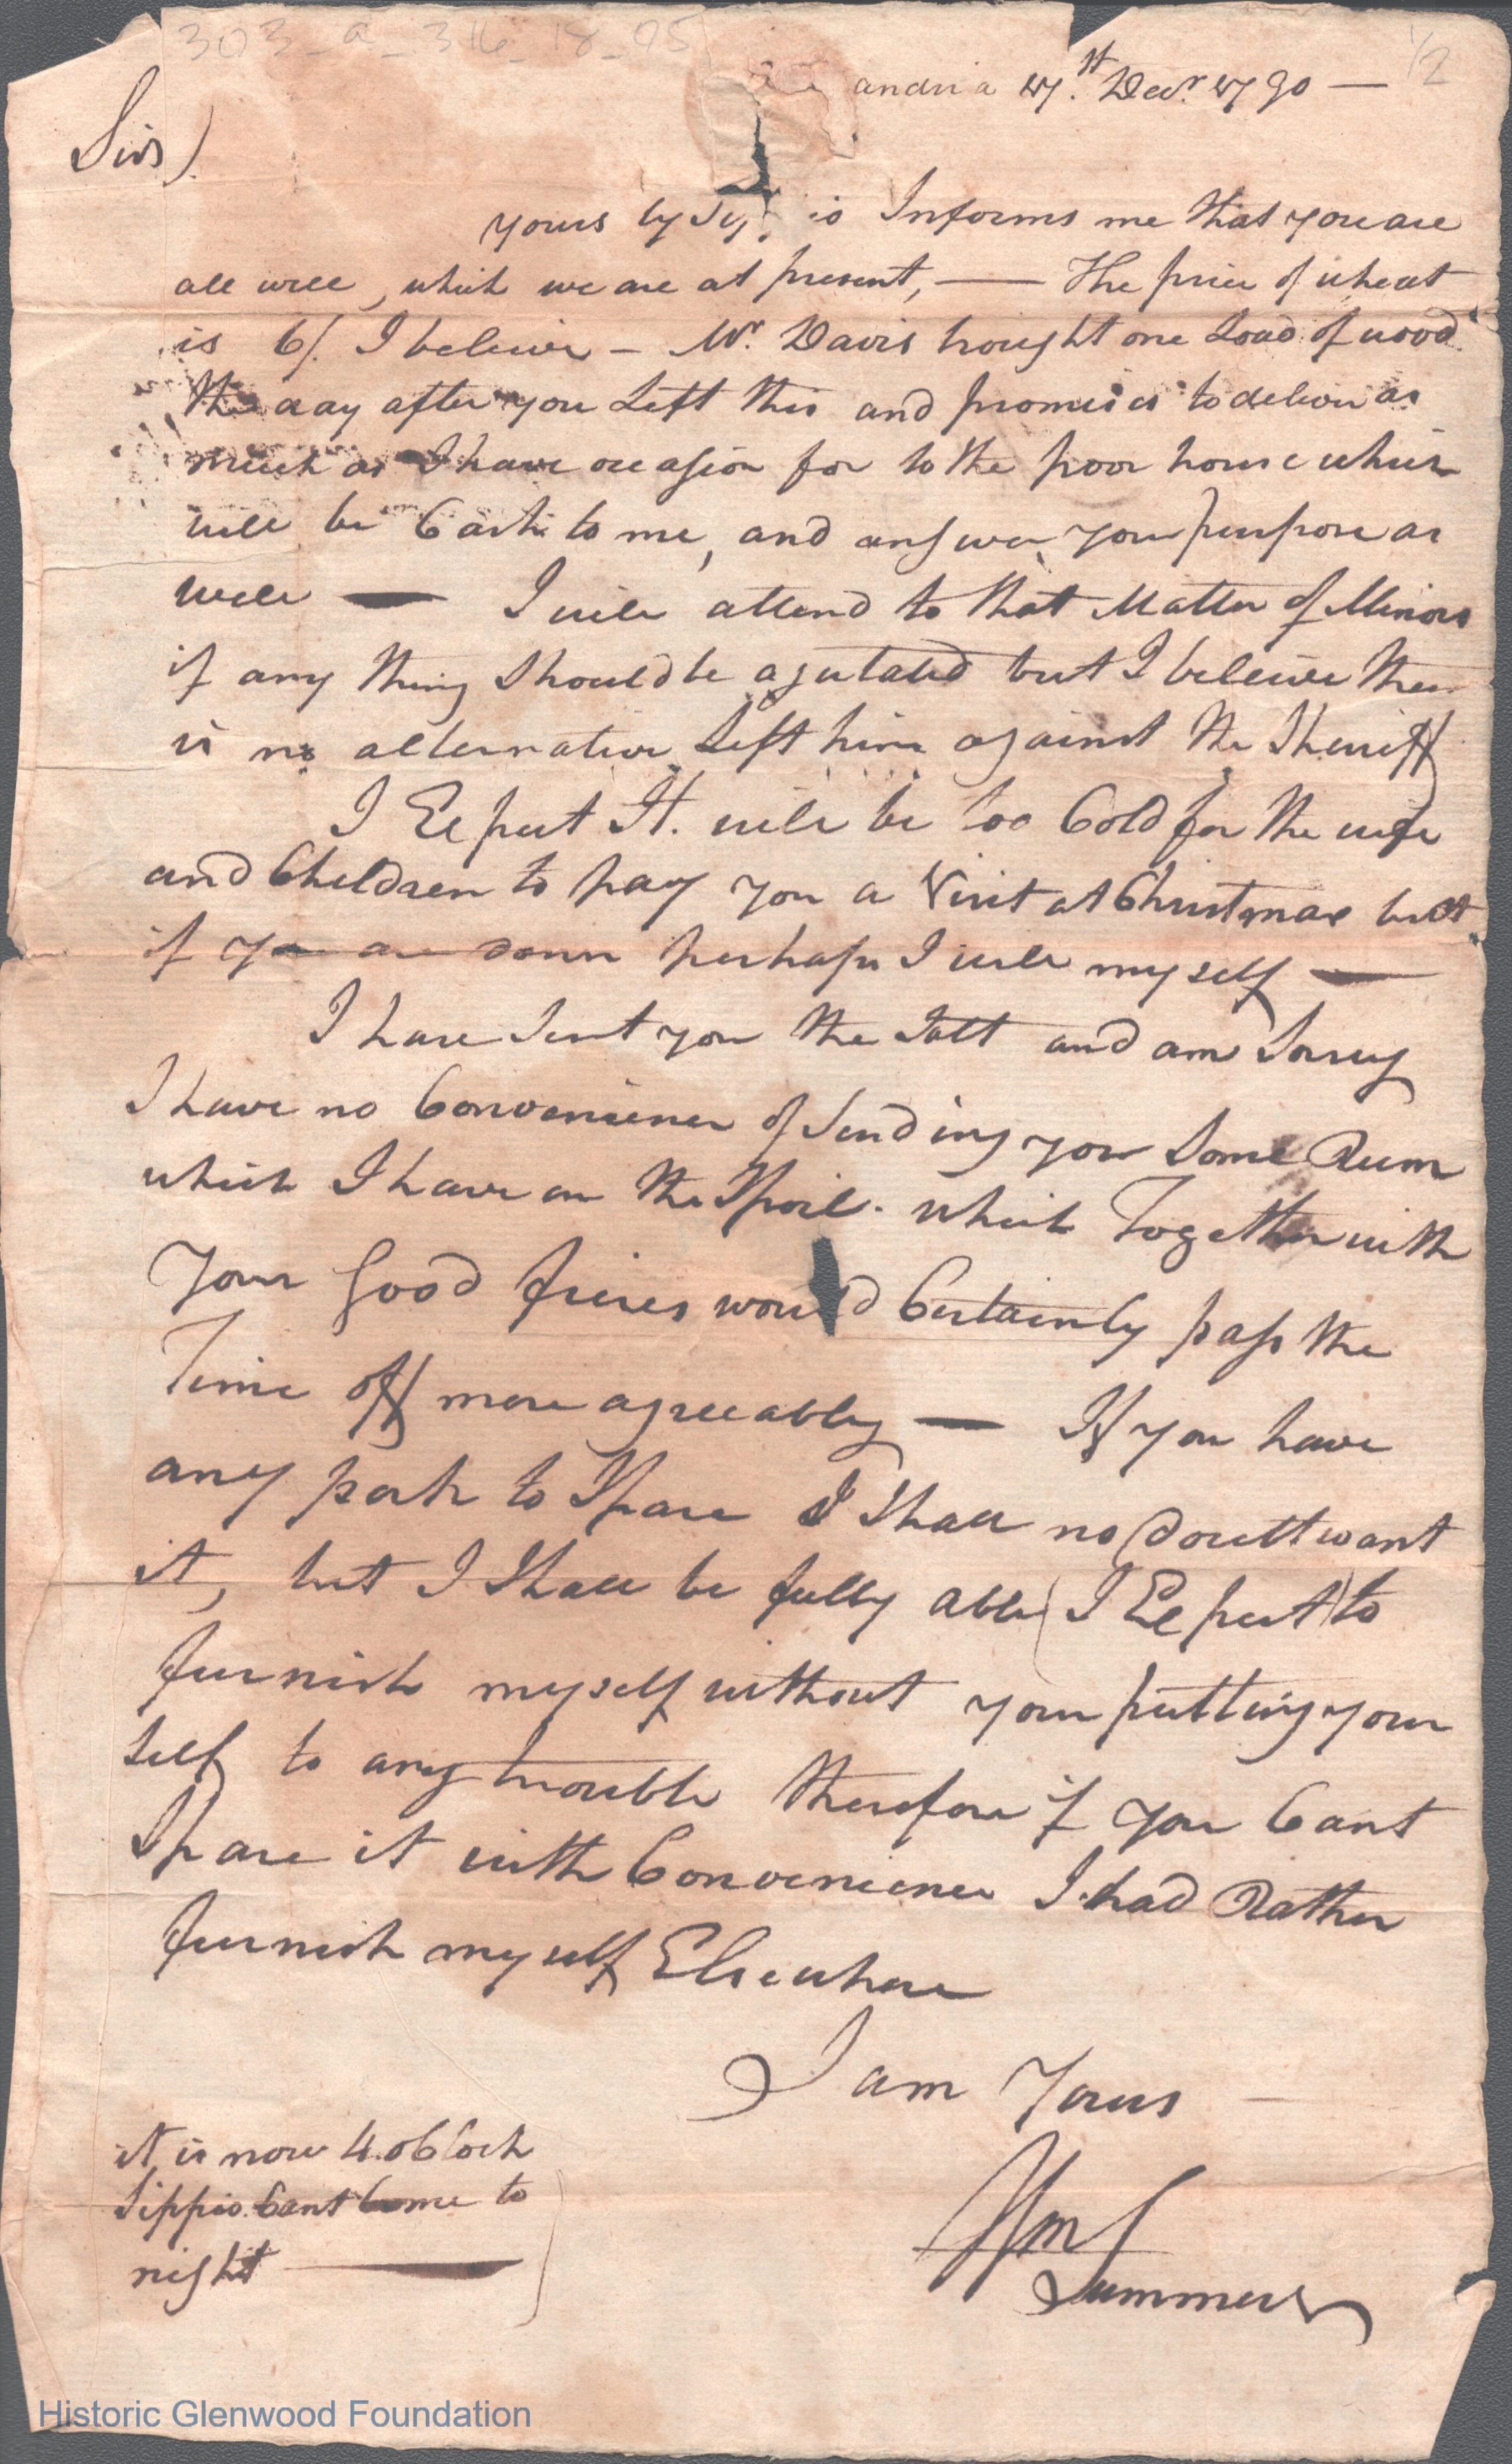 303_a_316_18_95
1/2
andria 17.st Decr. 1790 —
Sirs).
yours by is Informs me that you are
all well, which we are at present, — The price of wheat
is 6/. I beleive – Mr. Davis bought one Load of wood
the day after you Left this and promises to deliver as
much as I have ocasion for to the poor house which
will be Cash to me, and answer your purpose as
well — I will attend to that Matter of Minors
if any thing Should be agutated but I beleive there
is no alternative Left him against the Sherriff
I Expect It. will be too Cold for the wife
and Children to pay you a Visit at Christmas but
if you are down perhaps I will myself —
I have Sent you the Salt and am Sorry
I have no Convenience of Sending you Some Rum
which I have on the Spoil. which Together with
Your Good fieres would Certainly pass the
Time off more agreeably — If you have
any pork to Spare I Shall no doubt want
it, but I Shall be fully able (I Expect) to
furnish myself without your putting your
self to any trouble therefore if you Cant
Spare it with Convenience I had Rather
furnish myself Elsewhere
I am Yours
Wm
Summers
it is now 4. oClock
Sippio Cant Come to
night —
Historic Glenwood Foundation